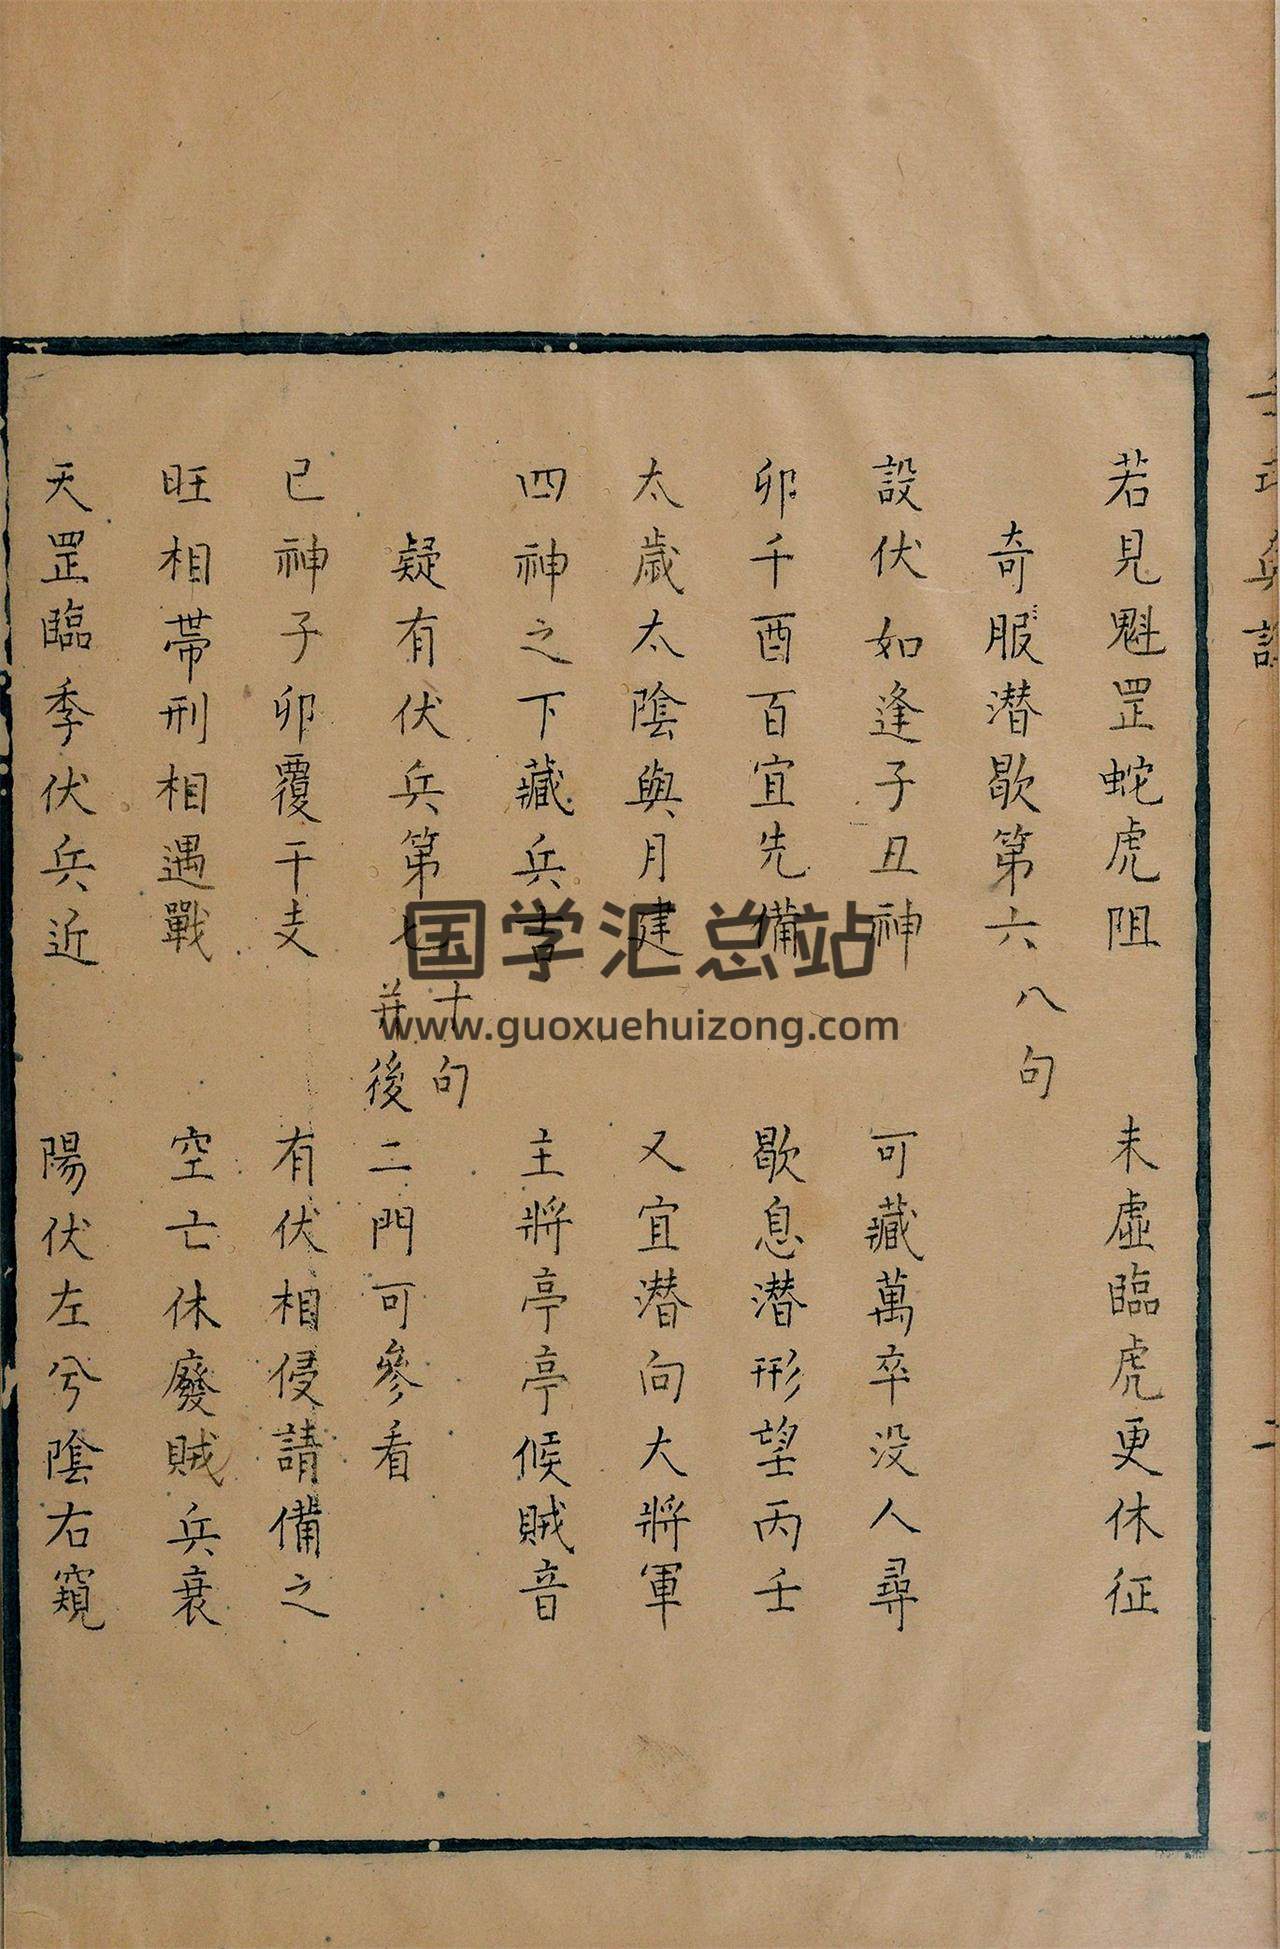 若見魁罡蛇虎阻 未虛臨虎更休征
奇服潛歇第六 八句
設伏如逢子丑神 可藏萬卒没人尋
卯千酉百宜先備 歇息潛形望丙壬
太歲太陰與月建 又宜潛向大將軍
四神之下藏兵吉 主將亭亭候賊音
疑有伏兵第七 十句
并後二門可參看
已神子卯覆干支 有伏相侵請備之
旺相帶刑相遇戰 空亡休廢賊兵衰
天罡臨季伏兵近 陽伏左兮陰右窺
国学汇总站
www.guoxuehuizong.com